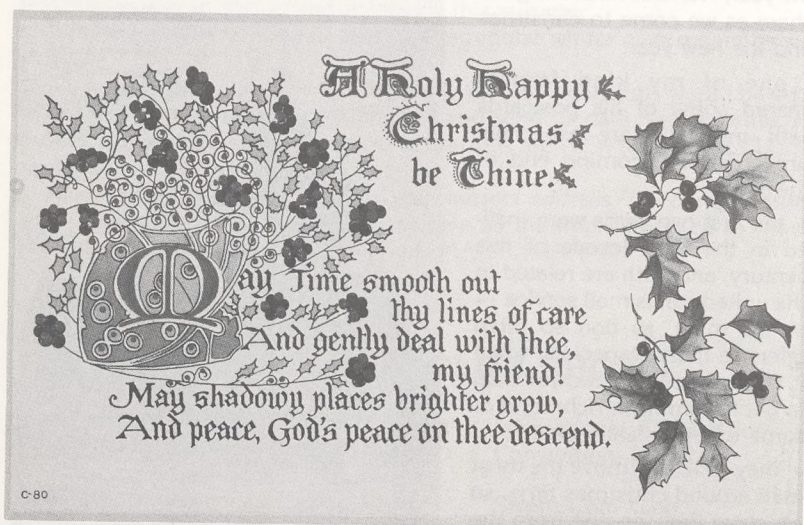 A Holy Happy
Christmas
be Thine.
May Time smooth out
thy lines of care
And gently deal with thee,
my friend!
May shadowy places brighter grow,
And peace, God's peace on thee descend.
C-80